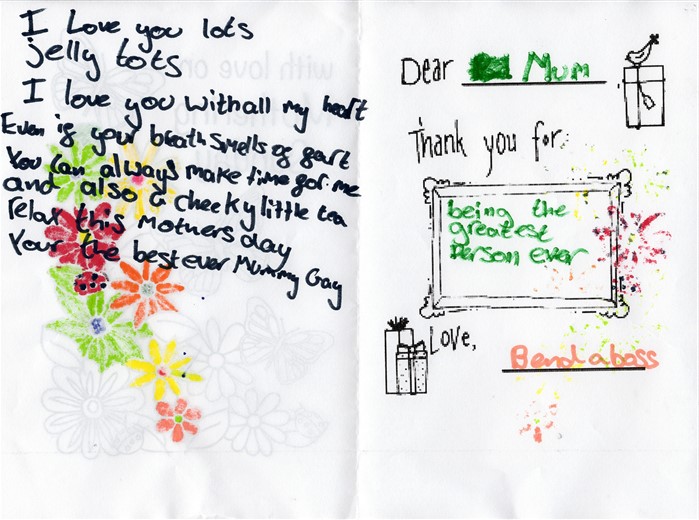 I Love you lots
jelly tots
I love you with all my heart
Even if your breath smells of fart
You can always make time for me
and also a cheeky little tea
relax this Mothers day
Your the best ever Mummy Gay
with love on
Mothering
Sunday
Dear Mum
Thank you for:
being the
greatest
Person ever
Love,
Bendaboss